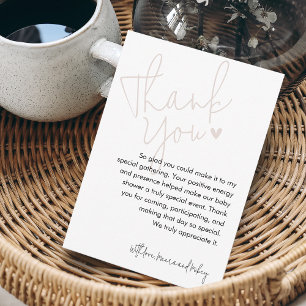 Thank
You
So glad you could make it to my
special gathering. Your positive energy
and presence helped make our baby
shower a truly special event. Thank
you for coming, participating, and
making that day so special.
We truly appreciate it.
with love, Maera and Mikey